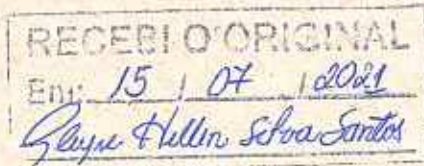 RECEBI O ORIGINAL
Em: 15 / 07 / 2021
Hellen Silva Santos